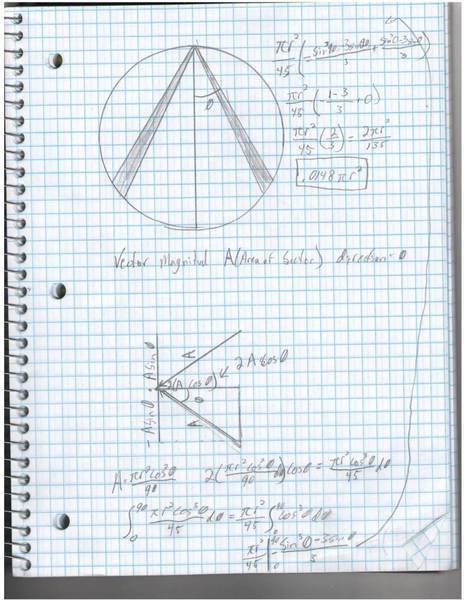 πr²/45 (-sin³90-3sin90/3 + sin³0-3sin0/3)
πr²/45 (-1-3/3 + 0)
πr²/45 (2/3) = 2πr²/135
.0148πr²
θ
Vector Magnitud A(Area of Sector) direction = θ
-A sin θ A sin θ
A
2(A cos θ) 2A cos θ
θ
A
A = πr²cos²θ/90 2(πr²cos²θ/90) cos θ = πr²cos³θ/45 dθ
∫₀⁹⁰ πr²cos³θ/45 dθ = πr²/45 ∫₀⁹⁰ cos³θ dθ
πr²/45 |₀⁹⁰ - sin³θ-3sinθ/3